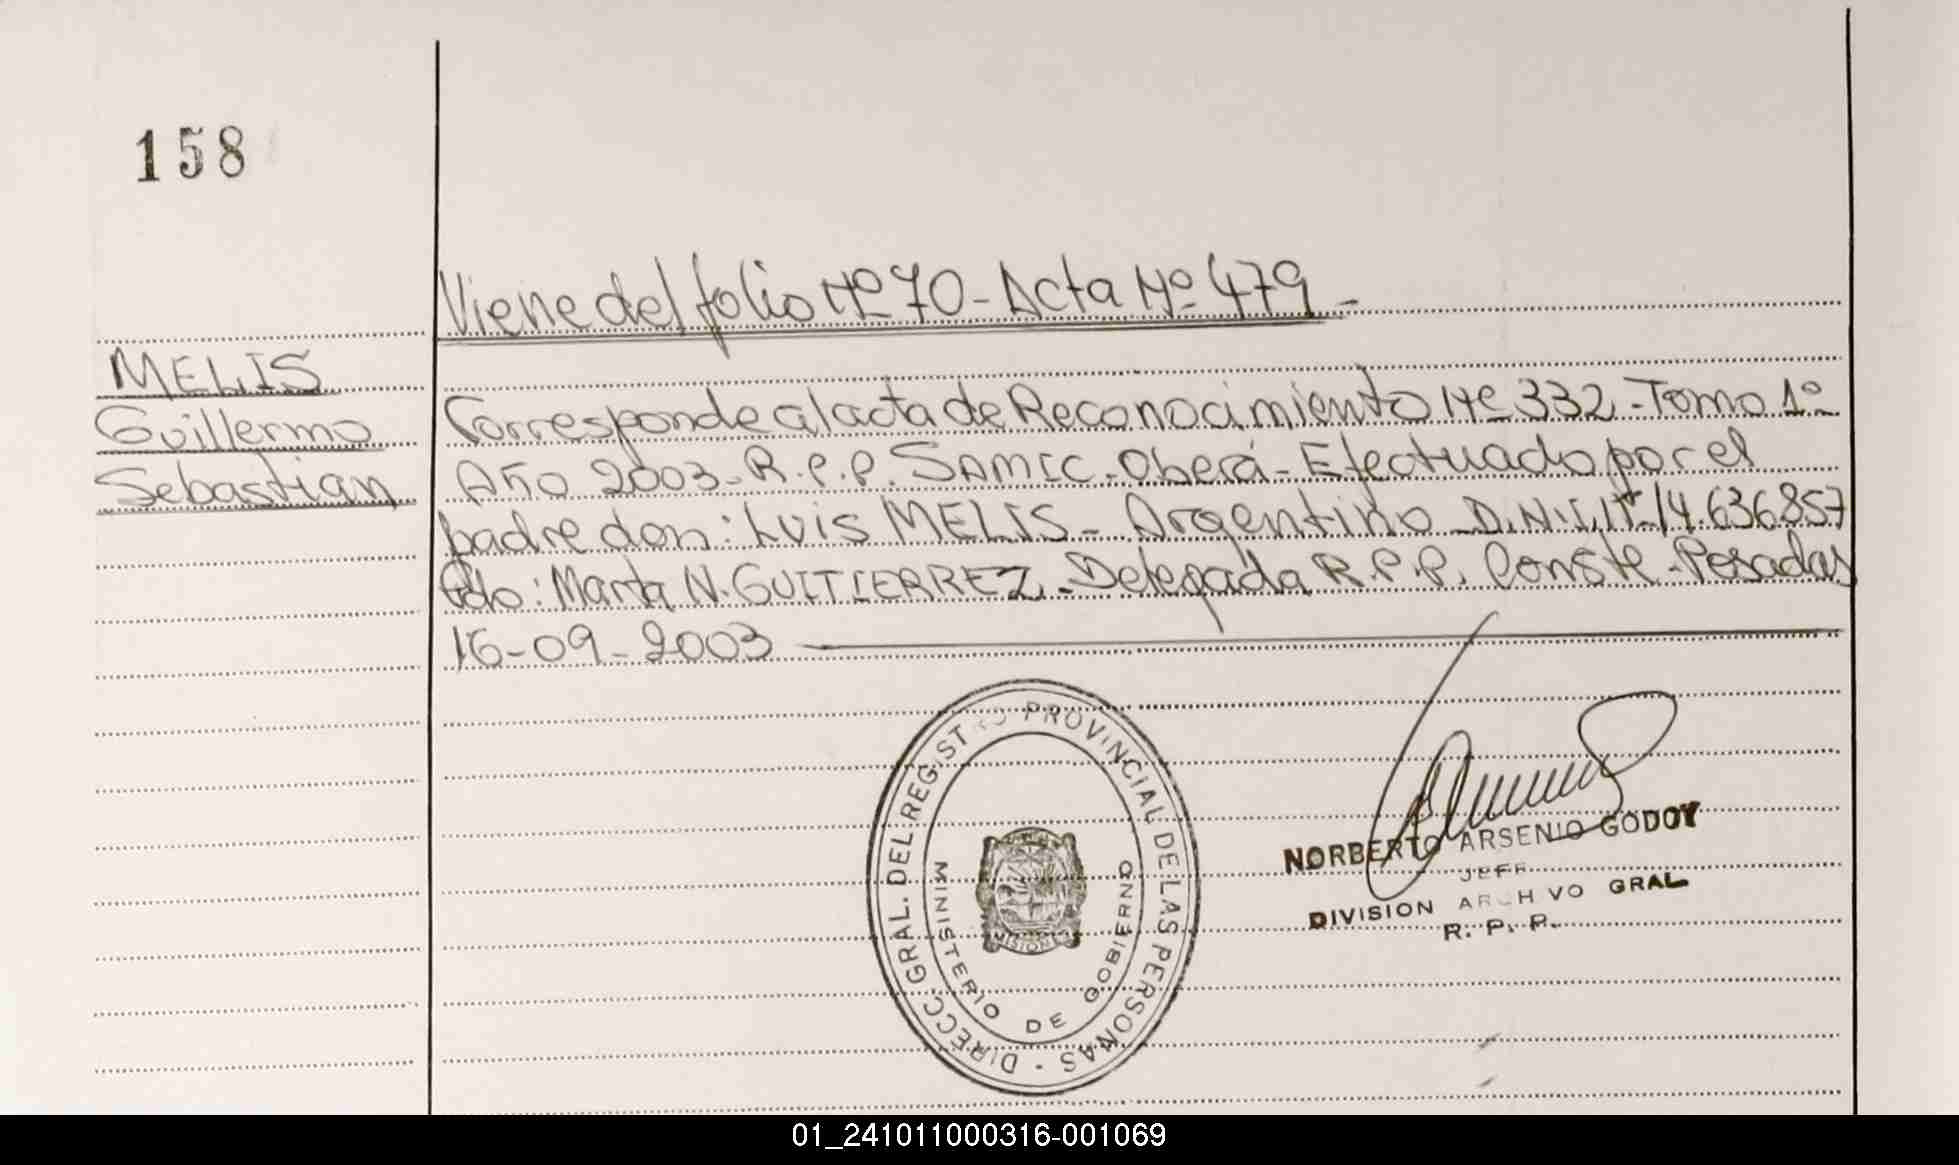 158
Viene del folio Nº 70 - Acta Nº 479 -
MELIS
Guillermo
Sebastian
Corresponde al acta de Reconocimiento Nº 332 - Tomo 1º
Año 2003 - R.P.P. SAMIC - Oberá - Efectuado por el
padre don: Luis MELIS - Argentino - D.N.I. Nº 14.636.857
Fdo: Marta N. GUITIERREZ - Delegada R.P.P. Conste - Posadas
16-09-2003
DIRECC GRAL. DEL REGISTRO PROVINCIAL DE LAS PERSONAS -
MINISTERIO DE GOBIERNO
MISIONES
NORBERTO ARSENIO GODOY
JEFE
DIVISION ARCHIVO GRAL
R. P. P.
01_241011000316-001069